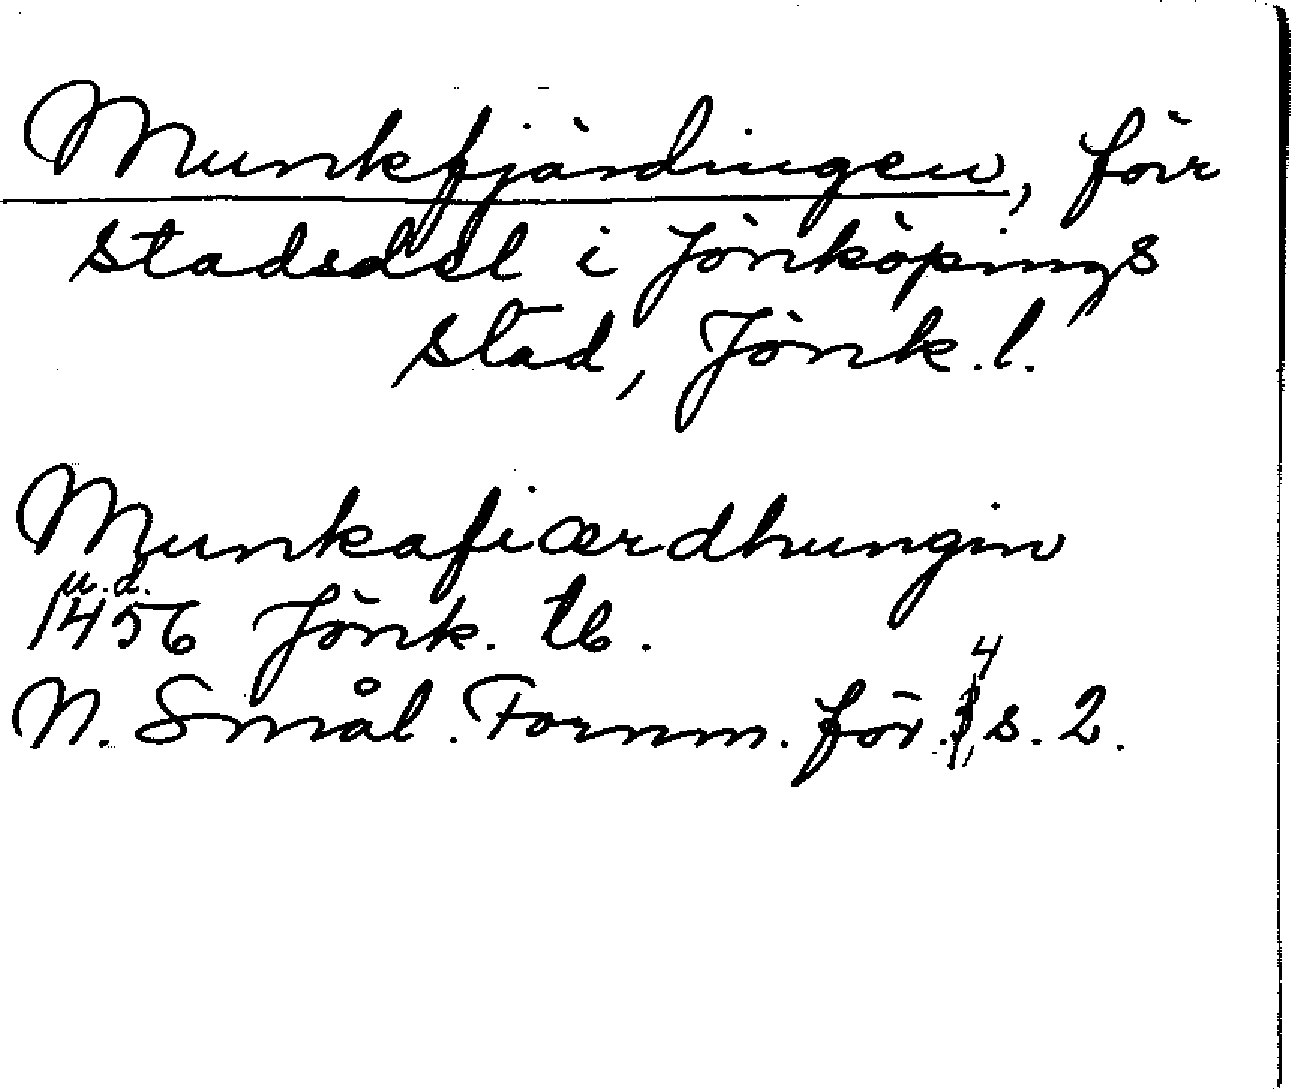 Munkfjärdingen, förr
stadsdel i Jönköpings
stad, Jönk. l.
Munkafiærdhungin
u.d.
1456 Jönk. tb.
N. Smål. Fornm. för. 4 s. 2.